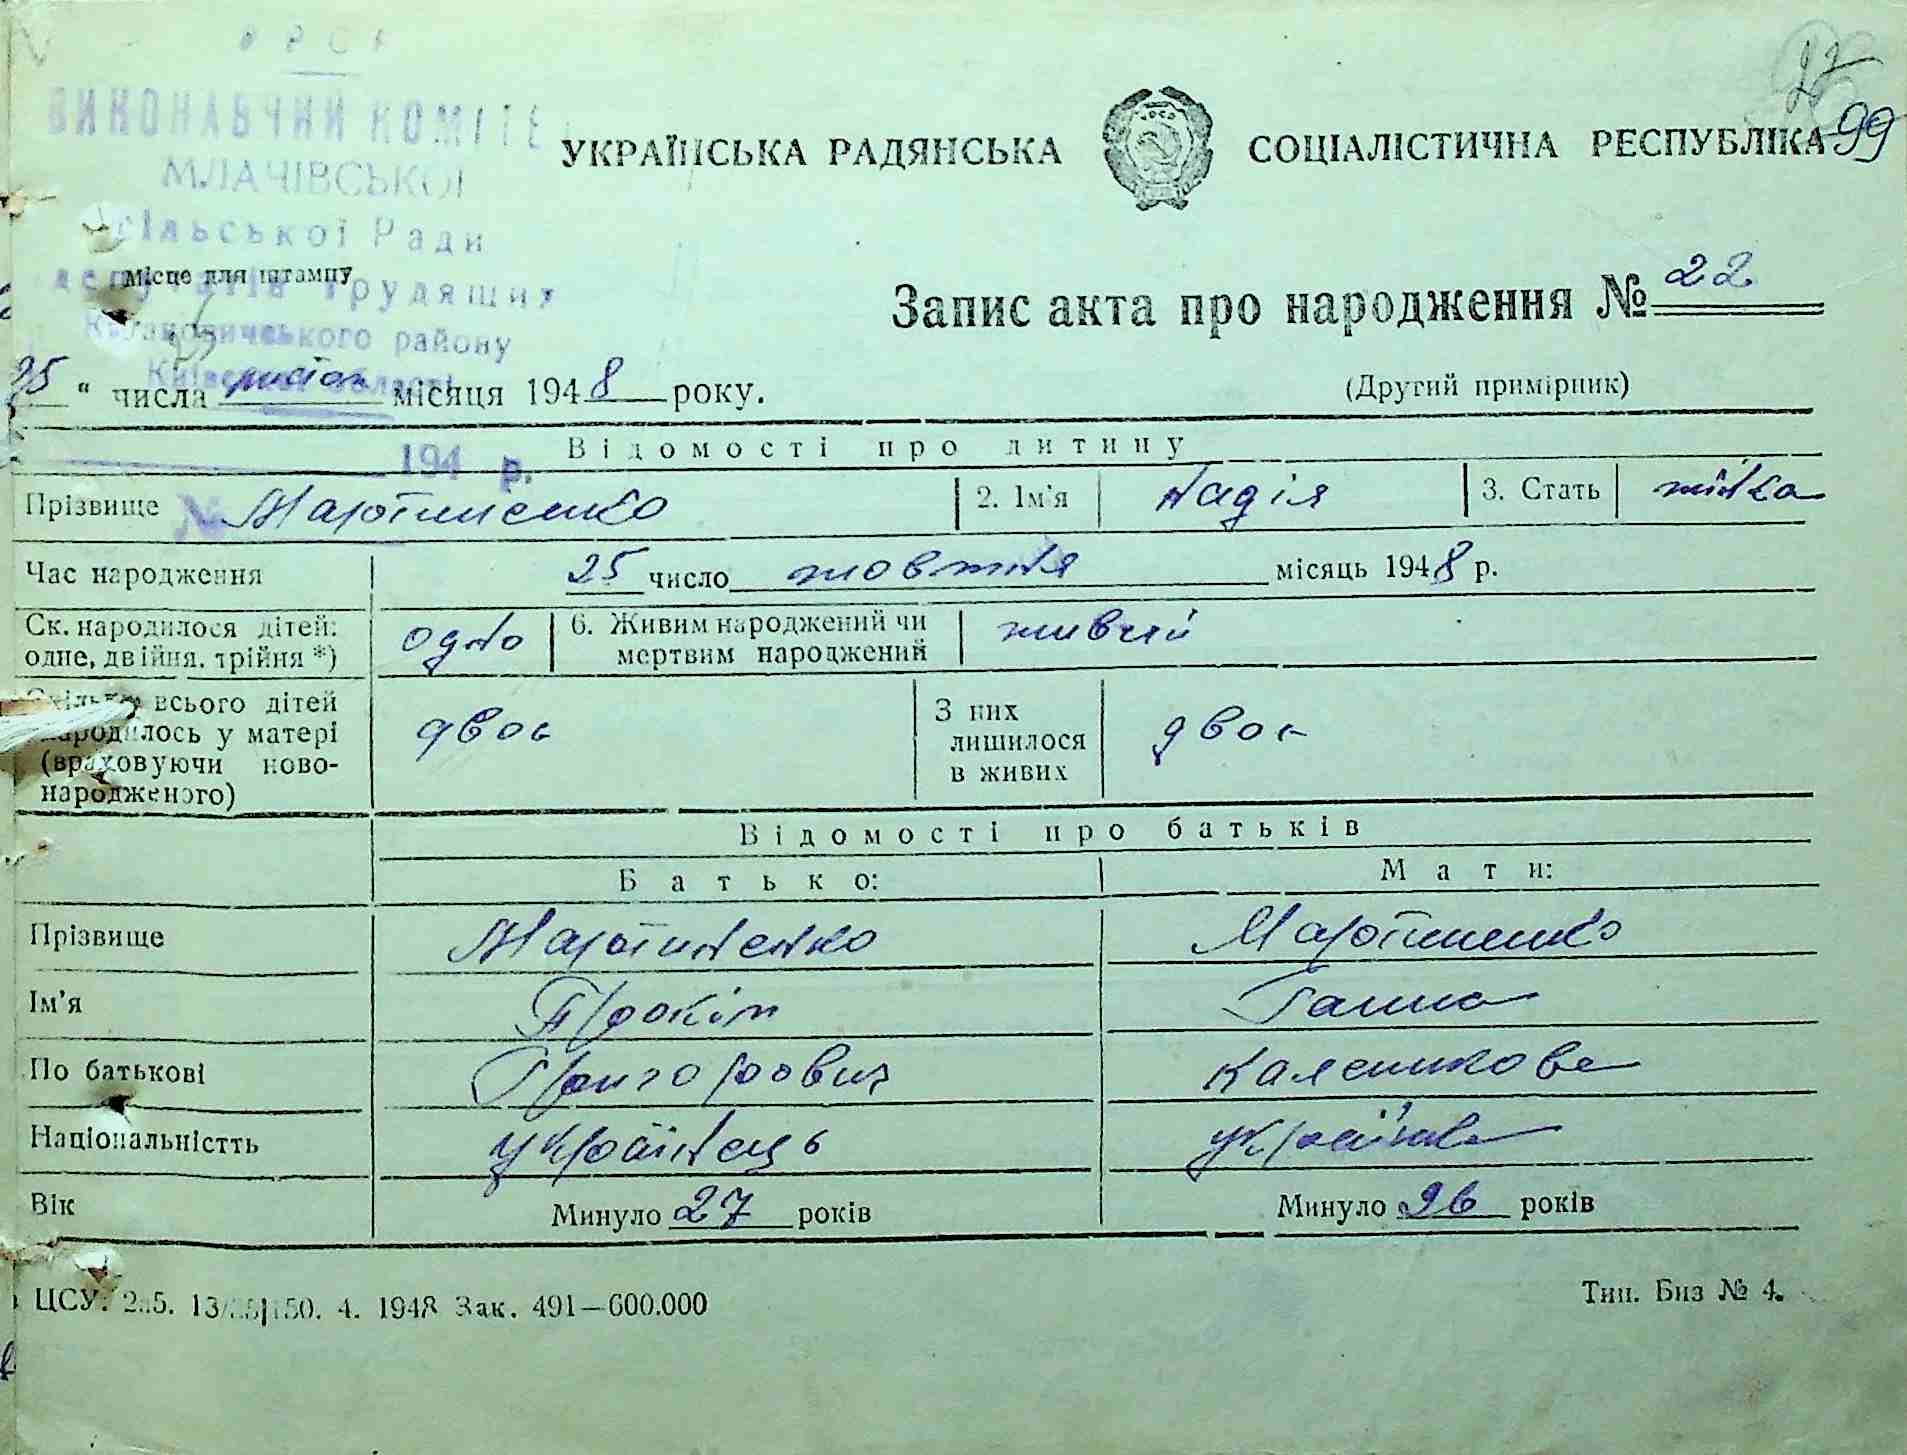 УРСР
ВИКОНАВЧИЙ КОМІТЕ
МЛАЧІВСЬКОЇ
сільської Ради
депутатів трудящих
Кагановичського району
Київської області
194 р.
№
Місце для штампу
99
УКРАЇНСЬКА РАДЯНСЬКА СОЦІАЛІСТИЧНА РЕСПУБЛІКА
Запис акта про народження № 22
(Другий примірник)
25 " числа листоп місяця 1948 року.
Відомості про дитину
Прізвище Мартиненко 2. Ім'я Надія 3. Стать жінка
Час народження 25 число жовтня місяць 1948 р.
Ск. народилося дітей: одно 6. Живим народжений чи живий
одне, двійня, трійня *) мертвим народжений
Скільки всього дітей З них
народилось у матері двоє лишилося двоє
(враховуючи ново- в живих
народженого)
Відомості про батьків
Батько: Мати:
Прізвище Мартиненко Мартиненко
Ім'я Прокіп Ганна
По батькові Григорович Каленикова
Національністть українець українка
Вік Минуло 27 років Минуло 26 років
ЦСУ. 4. 1948 Зак. 491—600.000
Тип. Биз № 4.